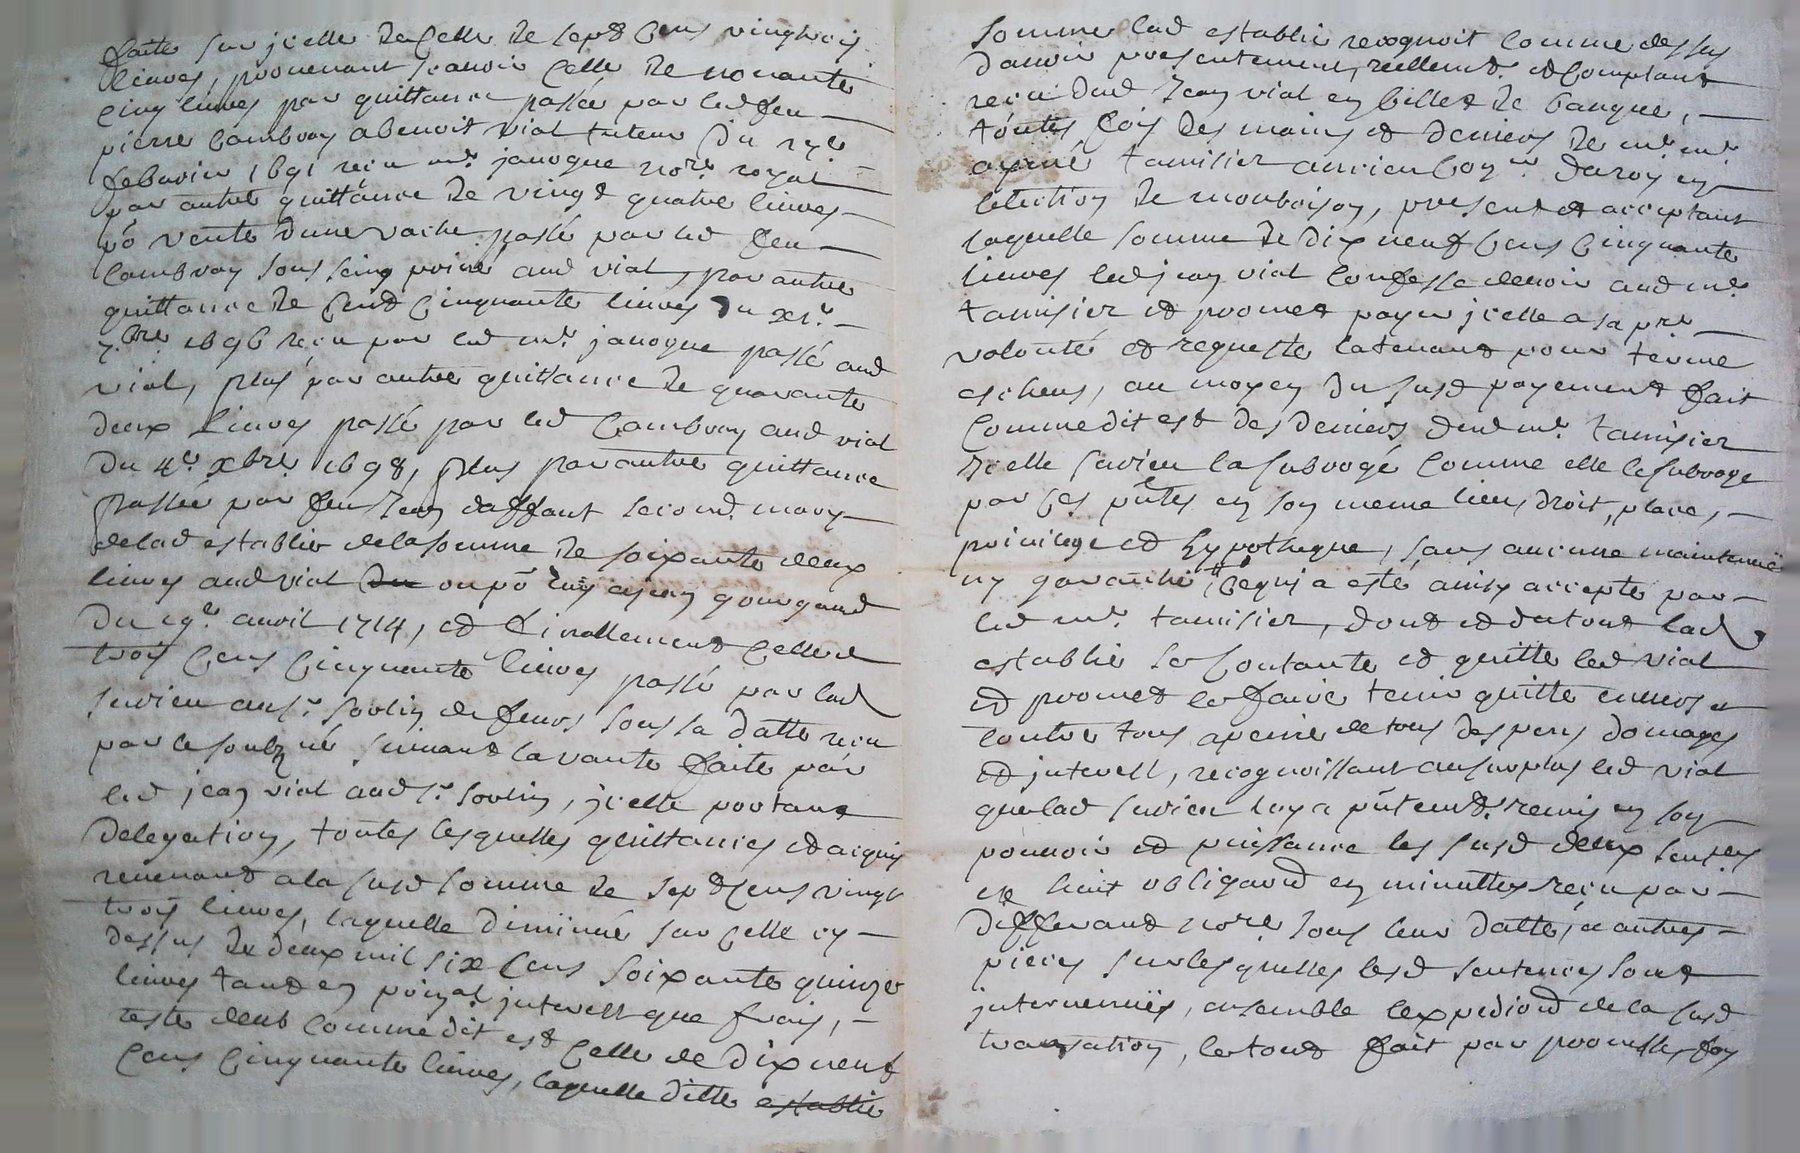 faite sur jcelle de celle de sept cens vingttrois
livres, provenant scavoir celle de nonante
cinq livres par quittance passée par led feu
pierre Cambray a benoit vial tuteur du 27e
febvrier 1691 recu me janogue nore royal
par autre quittance de vingt quatre livres
po vente dune vache passé par led feu
Cambray sous seing privé aud vial, par autre
quittance de Cent Cinquante livres du
7bre 1696 recu par led me janogue passé aud
vial, plus par autre quittance de quarante
deux livres passé par led Cambray aud vial
du 4e xbre 1698, plus par autre quittance
passée par feu Jean daffant second mary
delad establie de la somme de soixante deux
livres aud vial ou po luy
du 19e avril 1714, et finallement celle de
trois Cens Cinquante livres passé par lad
survieu au sr soulin de feurs sous sa datte recu
par le soubzné suivant la vante faite par
led jean vial aud sr soulin, jcelle portant
delegation, toutes lesquelles quittances et acquis
revenant a la susd somme de sept cens vingt
trois livres, laquelle diminué sur celle cy
dessus de deux mil six Cens soixante quinze
livres tant en prinal interest que frais,
reste deub comme dit est celle de dix neuf
Cens Cinquante livres, laquelle ditte establie
somme lad establie recognoit comme dessus
davoir presentement, reellemt et comptant
recu dud Jean vial en billet de banque,
toutes fois des mains et deniers de me me
aymé tamisier ancien Coner du roy en
lelection de monbrison, present et acceptant
laquelle somme de dix neuf Cens Cinquante
livres led jean vial confesse devoir aud me
tamisier et promet payer jcelle a sa pre
volonté et requeste latenant pour terme
escheus, au moyen du susd payement fait
Comme dit est des deniers dud me tamisier
Jcelle survieu la subrogé comme elle le subroge
par ces pntes en son meme lieu, droit, place,
privilege et hypotheque, sans aucune maintenüe
ny garantie, Ce qui a esté ainsy accepté par
led me tamisier, dont et du tout lad
establie se Contante et quitte led vial
et promet le faire tenir quitte envers et
contre tous a peine de tous despens domages
et jnterest, recognoissant au surplus led vial
que lad survieu luy a pntemt remis en son
pouvoir et puissance les susd deux sentces
et huit obligaond en minuttes recu par
differand nore sous leur datte, et autres
pieces sur lesquelles lesd sentences sont
jntervenües, ensemble lexpediond de la susd
transation, le tout fait par promesses foy